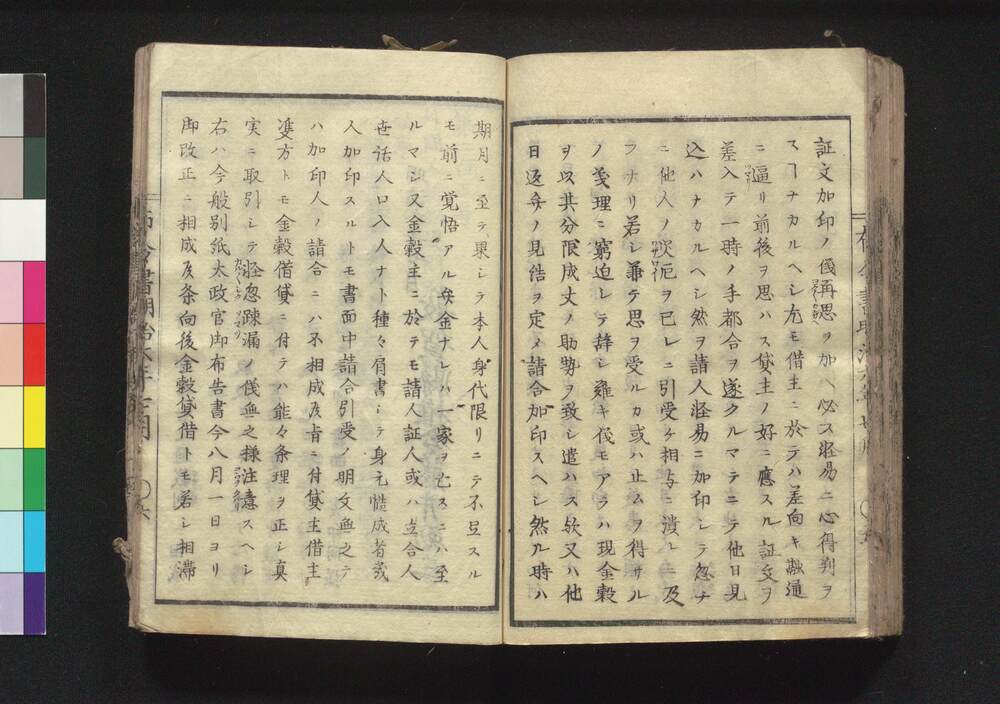 証文加印ノ儀再思ヲ加ヘ必ス軽易ニ心得判ヲ
スヿナカルヘシ尤モ借主ニ於テハ差向キ融通
ニ逼リ前後ヲ思ハス貸主ノ好ニ應スル証文ヲ
差入テ一時ノ手都合ヲ遂クルマテニテ他日見
込ハナカルヘシ然ヲ請人軽易ニ加印シテ忽チ
ニ他人ノ災厄ヲ已レニ引受ケ相与ニ潰レニ及
フナリ若シ兼テ思ヲ受ルカ或ハ止ムヲ得サル
ノ義理ニ窮迫シテ辞シ難キ儀モアラハ現金穀
ヲ以其分限成丈ノ助勢ヲ致シ遣ハス歟又ハ他
日返弁ノ見結ヲ定メ請合加印スヘシ然ル時ハ
期月ニ至テ果シテ本人身代限リニテ不足スル
モ前ニ覚悟アル弁金ナレハ一家ヲ亡スニハ至
ルマシ又金穀主ニ於テモ請人証人或ハ立合人
世話人口入人ナト種々肩書シテ身元慥成者幾
人加印スルトモ書面中請合引受ノ明文無之テ
ハ加印人ノ請合ニハ不相成候旨ニ付貸主借主
雙方トモ金穀借貸ニ付テハ能々条理ヲ正シ真
実ニ取引シテ軽忽疎漏ノ儀無之様注意スヘシ
右ハ今般別紙太政官御布告書今八月一日ヨリ
御改正ニ相成候条向後金穀貸借トモ若シ相滞